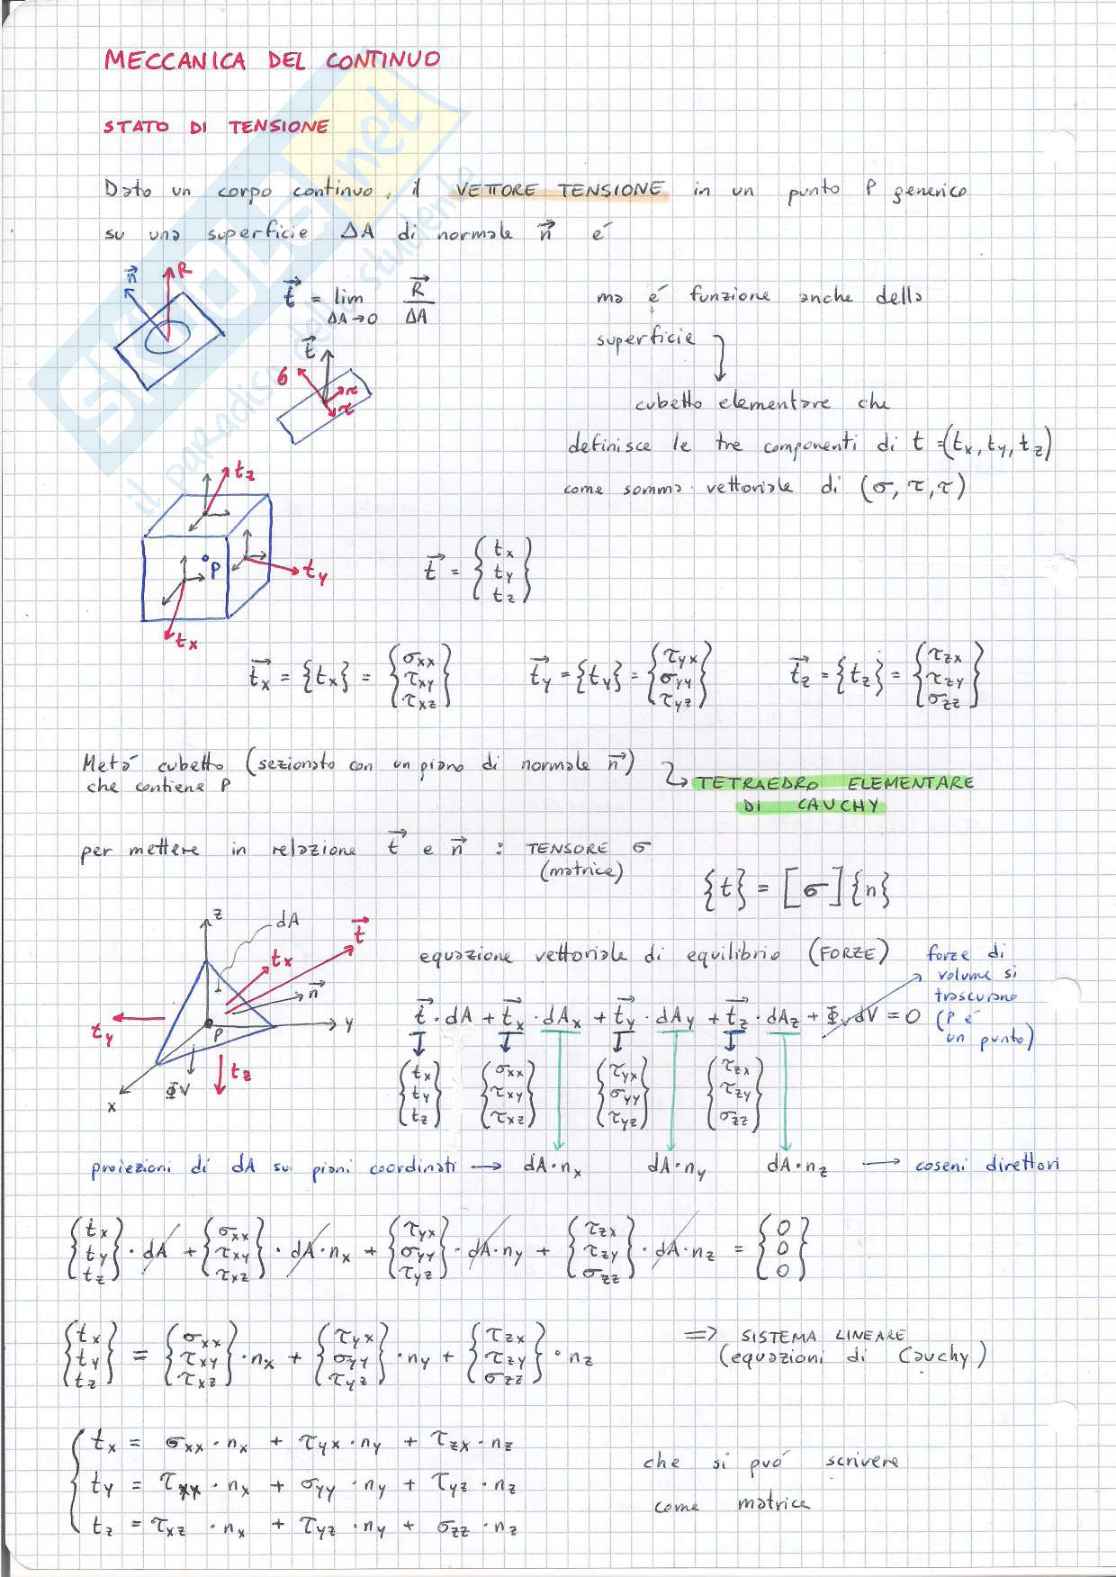 MECCANICA DEL CONTINUO
STATO DI TENSIONE
Dato un corpo continuo, il VETTORE TENSIONE in un punto P generico
su una superficie ΔA di normale n⃗ é
n⃗ R
t⃗ = lim ΔA→0 R⃗/ΔA
ma é funzione anche della
superficie
t⃗ σ τ τ
cubetto elementare che
definisce le tre componenti di t = (tx, ty, tz)
come somma vettoriale di (σ, τ, τ)
tz
P ty
tx
t⃗ = {tx ty tz}
t⃗x = {tx} = {σxx τxy τxz} t⃗y = {ty} = {τyx σyy τyz} t⃗z = {tz} = {τzx τzy σzz}
Metá cubetto (sezionato con un piano di normale n⃗)
che contiene P
TETRAEDRO ELEMENTARE
DI CAUCHY
per mettere in relazione t⃗ e n⃗ : TENSORE σ
(matrice)
{t} = [σ]{n}
z dA t⃗
tx
n⃗
ty P y
tz
ΦV
x
equazione vettoriale di equilibrio (FORZE)
forze di
volume si
trascurano
(P é
un punto)
t⃗ · dA + t⃗x · dAx + t⃗y · dAy + t⃗z · dAz + Φv dV = 0
{tx ty tz} {σxx τxy τxz} {τyx σyy τyz} {τzx τzy σzz}
proiezioni di dA sui piani coordinati → dA·nx dA·ny dA·nz → coseni direttori
{tx ty tz} · dA + {σxx τxy τxz} · dA·nx + {τyx σyy τyz} · dA·ny + {τzx τzy σzz} · dA·nz = {0 0 0}
{tx ty tz} = {σxx τxy τxz} · nx + {τyx σyy τyz} · ny + {τzx τzy σzz} · nz
=> SISTEMA LINEARE
(equazioni di Cauchy)
tx = σxx · nx + τyx · ny + τzx · nz
ty = τxy · nx + σyy · ny + τyz · nz
tz = τxz · nx + τyz · ny + σzz · nz
che si puó scrivere
come matrice
skuola.net
il paradiso dello studente